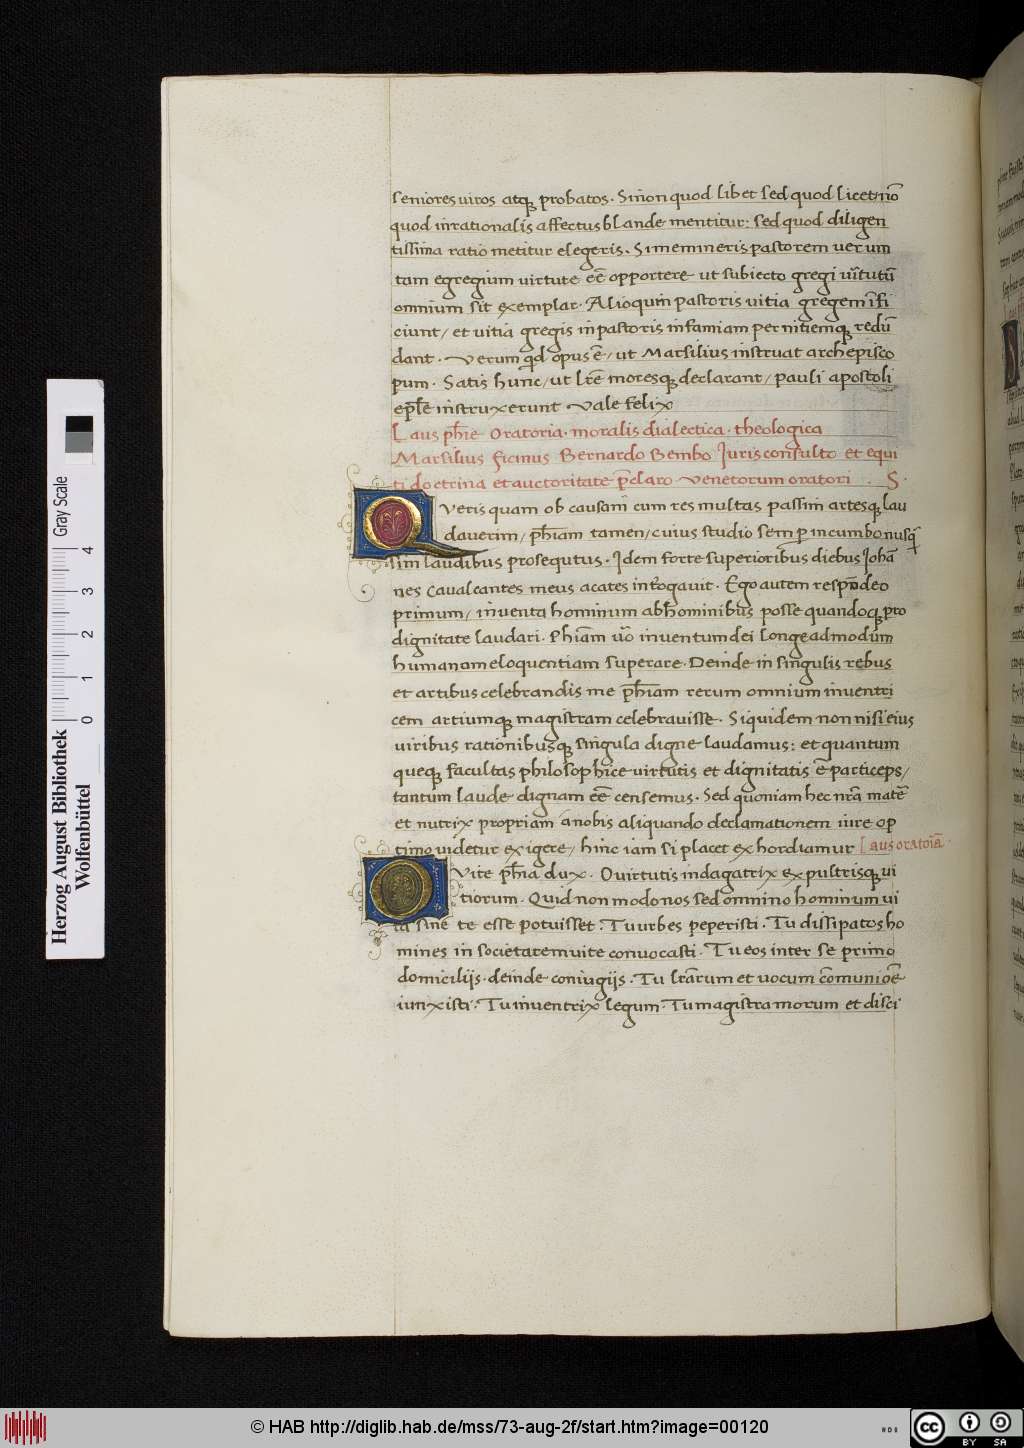 seniores uiros atq̃ probatos. Si nõn quod libet sed quod licet: nõ
quod irrationalis affectus blande mentitur: sed quod diligen
tissima ratio metitur elegeris. Si memineris pastorem uerum
tam egregium uirtute eẽ opportere ut subiecto gregi uĩtutũ
omnium sit exemplar. Alioquin pastoris uitia gregem ĩfi
ciunt, et uitia gregis in pastoris infamiam pernitiemq̃ redũ
dant. Verum qd opus ẽ, ut Marsilius instruat archiepisco
pum. Satis hunc, ut lr̃e moresq̃ declarant, pauli apostoli
epl̃e instruxerunt Vale felix
Laus ph̃ie Oratoria. moralis dialectica. theologica
Marsilius ficinus Bernardo Bembo Iuris consulto et equi
ti doctrina et auctoritate p̃claro Venetorum oratori . S.
Q Veris quam ob causam cum res multas passim artesq̃ lau
dauerim, ph̃iam tamen, cuius studio semp incumbo nusq̃
sim laudibus prosequtus. Idem forte superioribus diebus Iohã
nes Caualcantes meus acates inter̃ogauit. Ego autem respõdeo
primum, inuenta hominum ab hominibus posse quandoq̃ pro
dignitate laudari. Phiam uõ inuentum dei longe admodum
humanam eloquentiam superare. Deinde in singulis rebus
et artibus celebrandis me ph̃iam rerum omnium inuentri
cem artiumq̃ magistram celebrauisse. Siquidem non nisi eius
uiribus rationibusq̃ singula digne laudamus: et quantum
queq̃ facultas philosophice uirtutis et dignitatis ẽ particeps,
tantum laude dignam eẽ censemus. Sed quoniam hec nr̃a matẽ
et nutrix propriam a nobis aliquando declamationem iure op
timo uidetur exigere, hinc iam si placet exhordiamur Laus oratoĩa.
O Vite ph̃ia dux. O uirtutis indagatrix expultrixq̃ ui
tiorum. Quid non modo nos sed omnino hominum ui
ta sine te esse potuisset: Tu urbes peperisti. Tu dissipatos ho
mines in societatem uite conuocasti. Tu eos inter se primo
domicilijs. deinde coniugijs. Tu lr̃arum et uocum cõmuniõe
iunxisti: Tu inuentrix legum. Tu magistra morum et disci
Herzog August Bibliothek
Wolfenbüttel
0 1 2 3 4
Gray Scale
© HAB http://diglib.hab.de/mss/73-aug-2f/start.htm?image=00120
HAB
cc BY SA